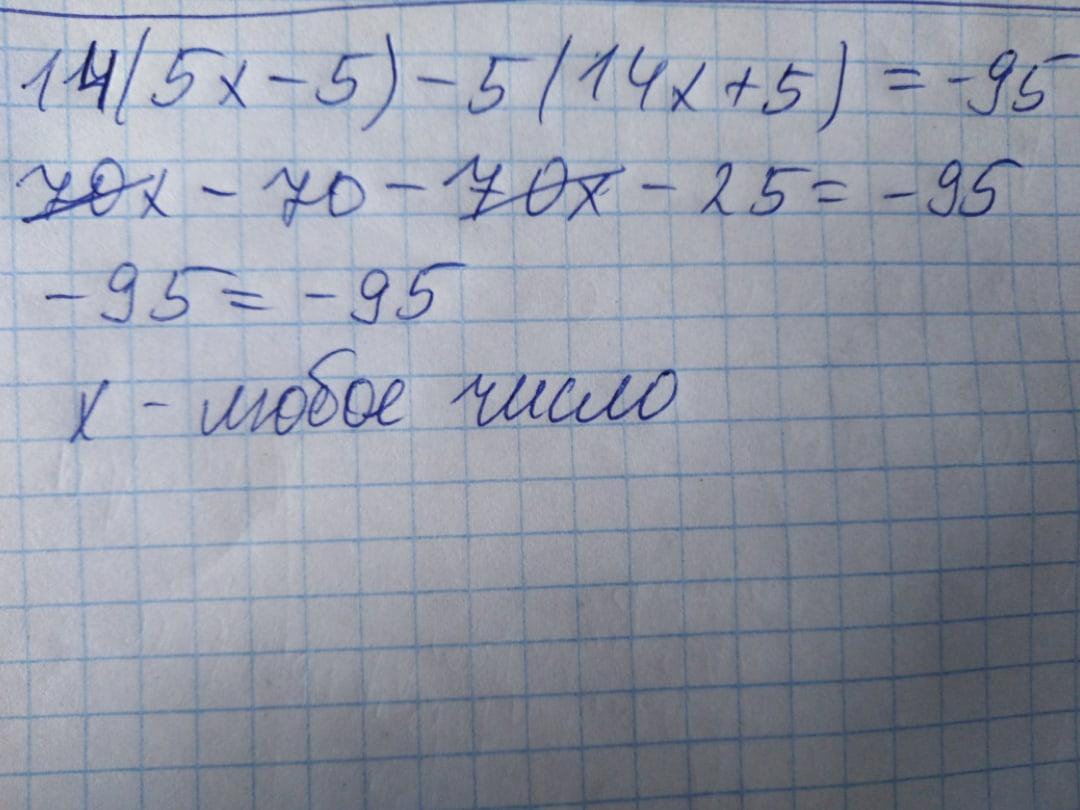 14(5x-5)-5(14x+5)=-95
70x-70-70x-25=-95
-95=-95
x-любое число